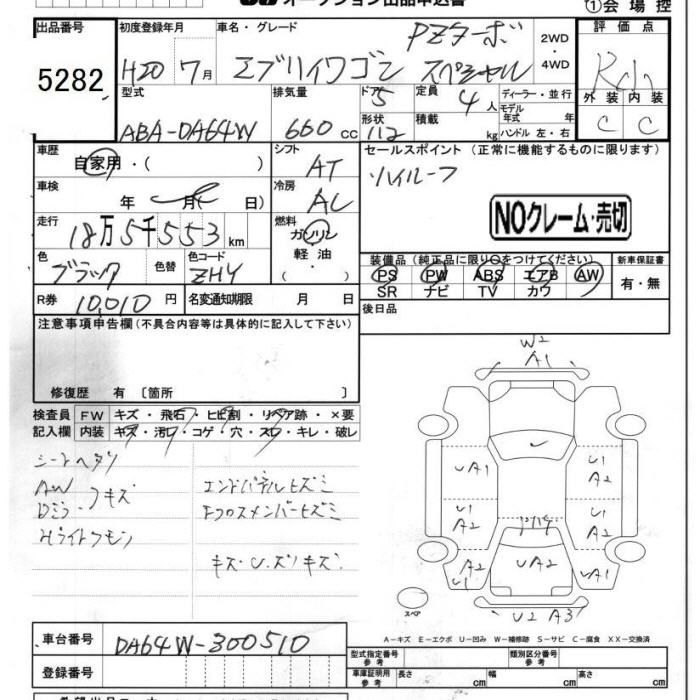 オークション出品申込書
①会場控
出品番号 初度登録年月 車名・グレード 評価点
5282 H20 7月 エブリイワゴン PZターボ スペシャル 2WD・4WD
外装 内装
C C
型式 排気量 ドア 定員 ディーラー・並行
ABA-DA64W 660cc 5 4人 モデル年式 年
形状 積載 kg ハンドル 左・右
車歴 シフト セールスポイント(正常に機能するものに限ります)
自家用・( ) AT ハイルーフ
車検 年 月( 日) 冷房 AC
NOクレーム・売切
走行 18万5千553km 燃料 ガソリン 軽油・( )
色 ブラック 色替 色コード ZHY
装備品(純正品に限り○をつけてください) 新車保証書
PS PW ABS エアB AW 有・無
SR ナビ TV カワ
R券 10,010円 名変通知期限 月 日 後日品
注意事項申告欄(不具合内容等は具体的に記入して下さい)
修復歴 有〔箇所 〕
検査員 FW キズ・飛石・ヒビ割・リペア跡・×要
記入欄 内装 キズ・汚れ・コゲ・穴・スレ・キレ・破レ
シートヘタリ
AW・フキズ エンドパネルヒズミ
Dミラー Fクロスメンバーヒズミ
Hライトクモリ
キズ・U・ズリキズ
W2
A1
UA1 U1 A2
U1 A2 U1 A2
A2 U1 UA2 A2 UA1
U2 A3
スペア
A-キズ E-エクボ U-凹み W-補修跡 S-サビ C-腐食 XX-交換済
車台番号 DA64W-300510 型式指定番号 参考 類別区分番号 参考
登録番号 車庫証明用 参考 長さ cm 幅 cm 高さ cm